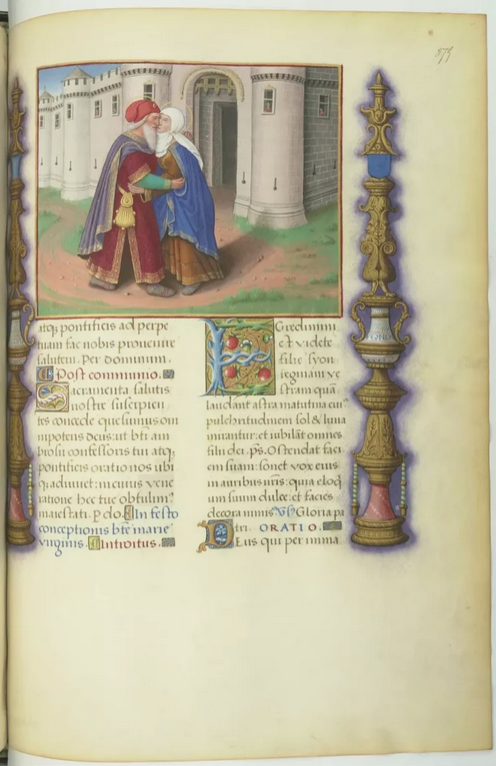 atq; pontificis ad perpe
tuam fac nobis provenire
salutem. Per dominum.
Post communio.
Sacramenta salutis
nostre suscipien
tes concede quesumus om
nipotens deus: ut bti am
brosii confessoris tui atq;
pontificis oratio nos ubi
q; adiuvet: in cuius vene
ratione hec tue obtulim9
maiestati. p do. In festo
conceptionis bte marie
virginis. Introitus.
EGredimini
et videte
filie syon
reginam ve
stram quā
laudant astra matutina cui9
pulchritudinem sol & luna
mirantur: et iubilāt omnes
filii dei. ps. Ostendat faci
em suam: sonet vox eius
in auribus nr̄is: quia eloq
ium suum dulce: et facies
decora nimis Vs Gloria pa
tri. ORATIO.
DEus qui per imma